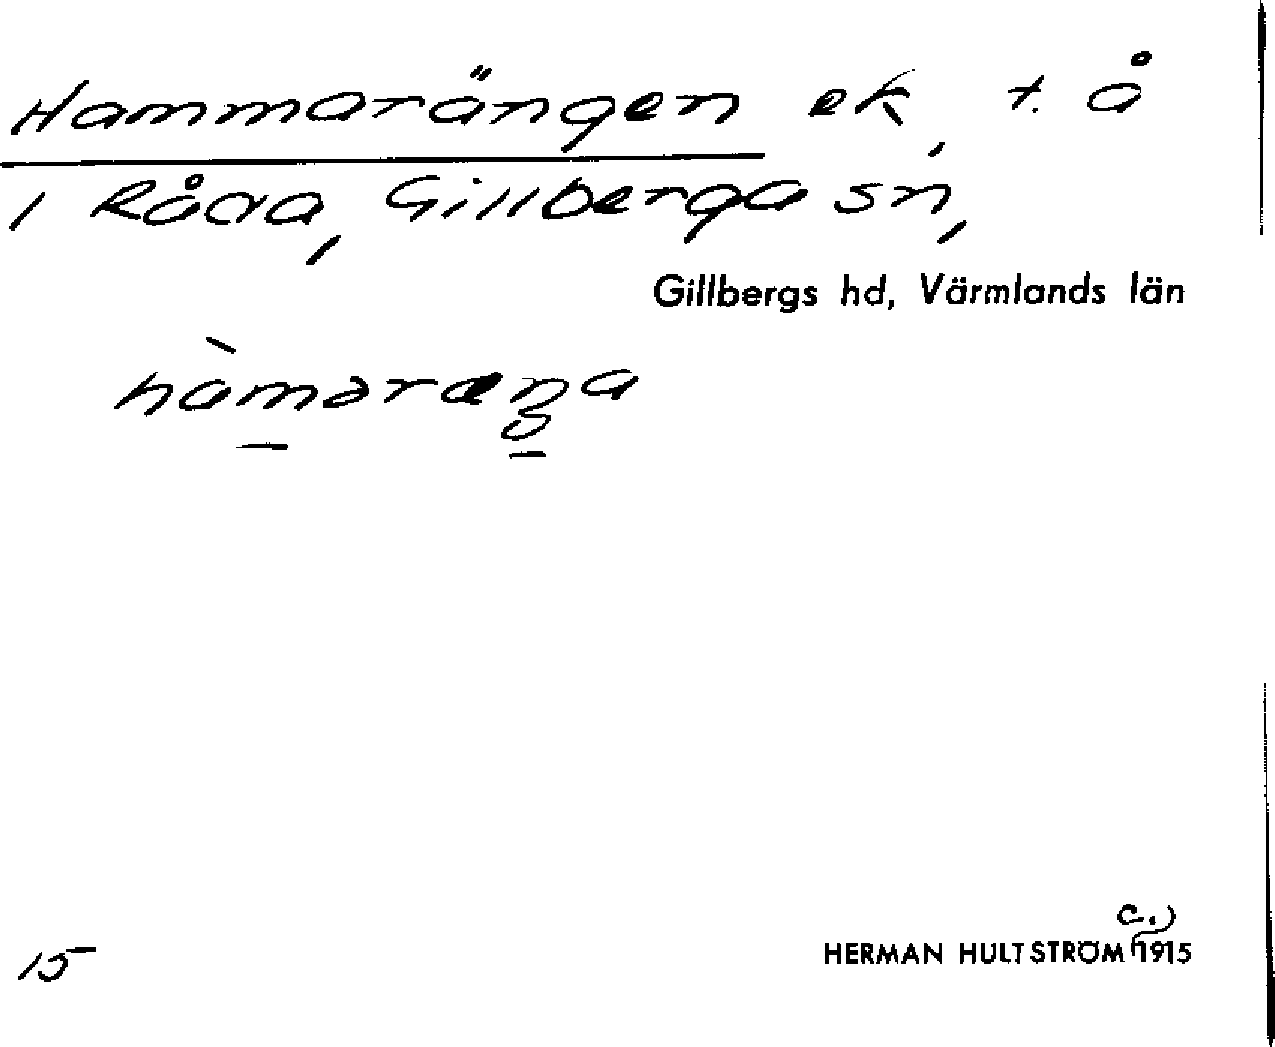 Hammarängen ek, t. å
i Råda, Gillberga sn,
Gillbergs hd, Värmlands län
hàməræŋa
15
HERMAN HULTSTRÖM (c.) 1915